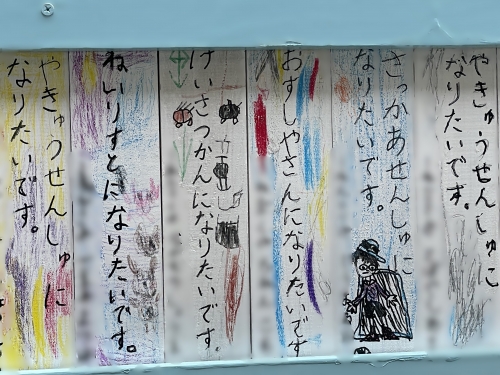 やきゅうせんしゅに
なりたいです。
さっかあせんしゅに
なりたいです。
おすしやさんになりたいです
けいさつかんになりたいです。
ねいりすとになりたいです。
やきゅうせんしゅに
なりたいです。